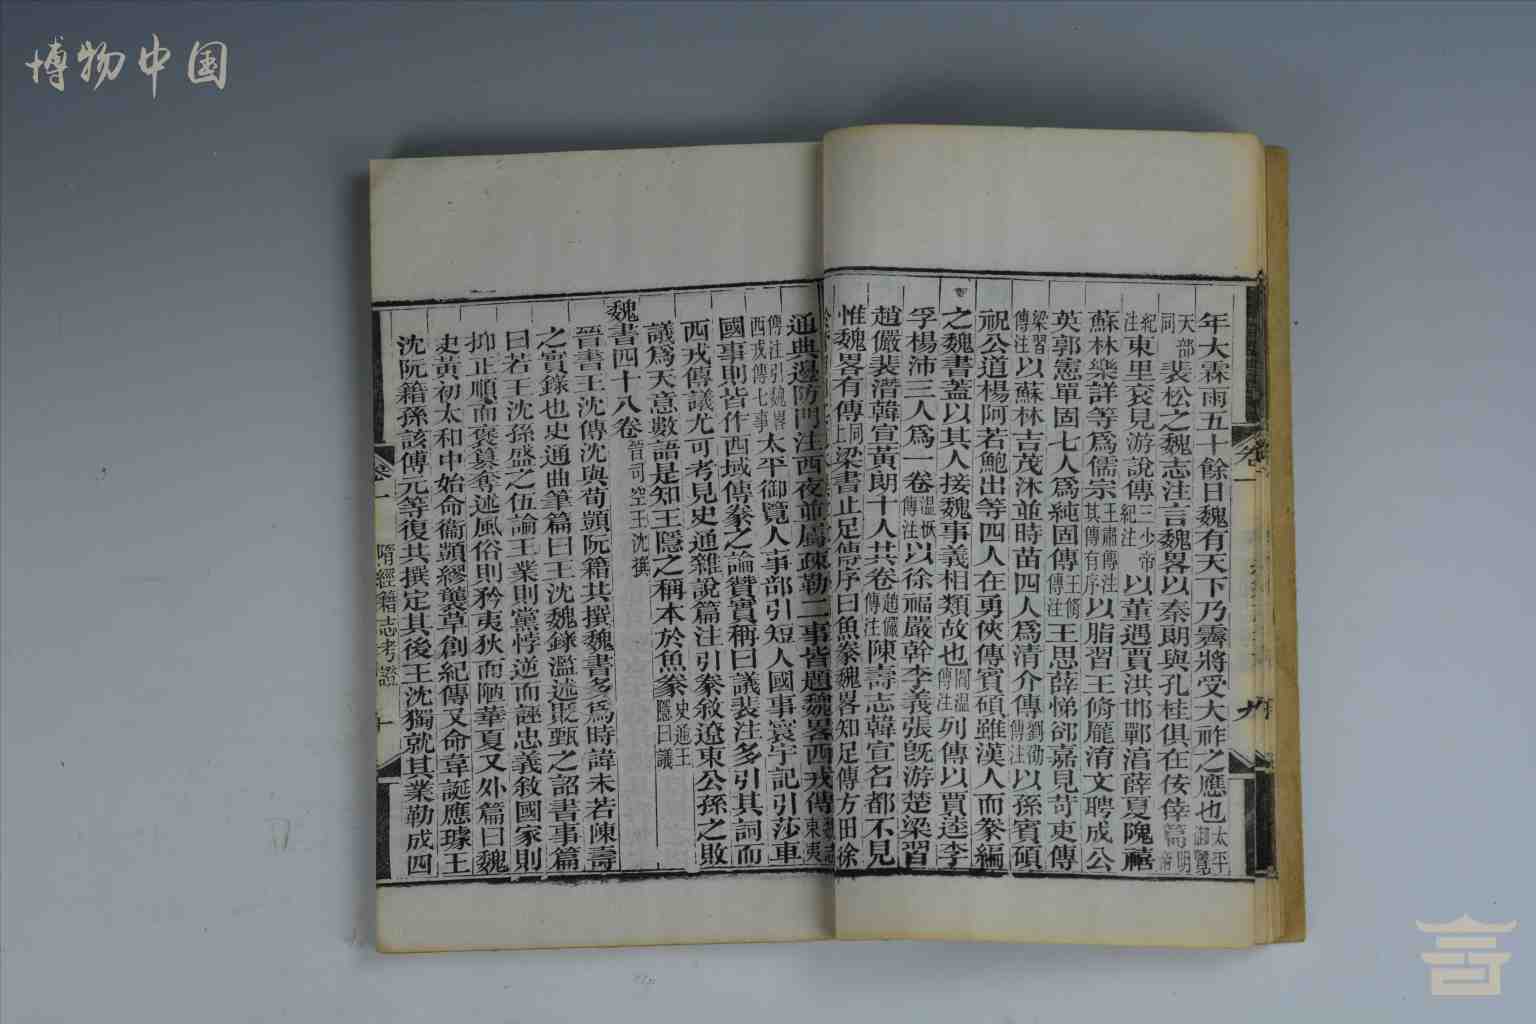 博物中国
年大霖雨五十餘日魏有天下乃霽將受大祚之應也太平御覽
天部同裴松之魏志注言魏畧以秦朗與孔桂俱在佞倖篇明帝
紀注東里袞見游說傳三少帝紀注以董遇賈洪邯鄲淳薛夏隗禧
蘇林樂詳等爲儒宗王肅傳注其傳有序以脂習王脩龐淯文聘成公
英郭憲單固七人爲純固傳王脩傳注王思薛悌郤嘉見苛吏傳
梁習傳注以蘇林吉茂沐並時苗四人爲清介傳劉劭傳注以孫賓碩
祝公道楊阿若鮑出等四人在勇俠傳賓碩雖漢人而豢編
之魏書蓋以其人接魏事義相類故也閻溫傳注列傳以賈逵李
孚楊沛三人爲一卷溫恢傳注以徐福嚴幹李義張旣游楚梁習
趙儼裴潛韓宣黃朗十人共卷趙儼傳注陳壽志韓宣名都不見
惟魏畧有傳同上梁書止足傳序曰魚豢魏畧知足傳方田徐
通典邊防門注西夜並屬疎勒二事皆題魏畧西戎傳東夷
傳注引魏畧西戎傳七事太平御覽人事部引短人國事寰宇記引莎車
國事則皆作西域傳豢之論贊實稱曰議裴注多引其詞而
西戎傳議尤可考見史通雜說篇注引豢敘遼東公孫之敗
議爲天意數語是知王隱之稱本於魚豢史通王隱曰議
魏書四十八卷晉司空王沈撰
晉書王沈傳沈與荀顗阮籍共撰魏書多爲時諱未若陳壽
之實錄也史通曲筆篇曰王沈魏錄濫述貶甄之詔書事篇
曰若王沈孫盛之伍論王業則黨悖逆而誣忠義敘國家則
抑正順而褒篡奪述風俗則矜夷狄而陋華夏又外篇曰魏
史黃初太和中始命衞顗繆襲草創紀傳又命韋誕應璩王
沈阮籍孫該傅元等復共撰定其後王沈獨就其業勒成四
卷一
隋經籍志考證
十